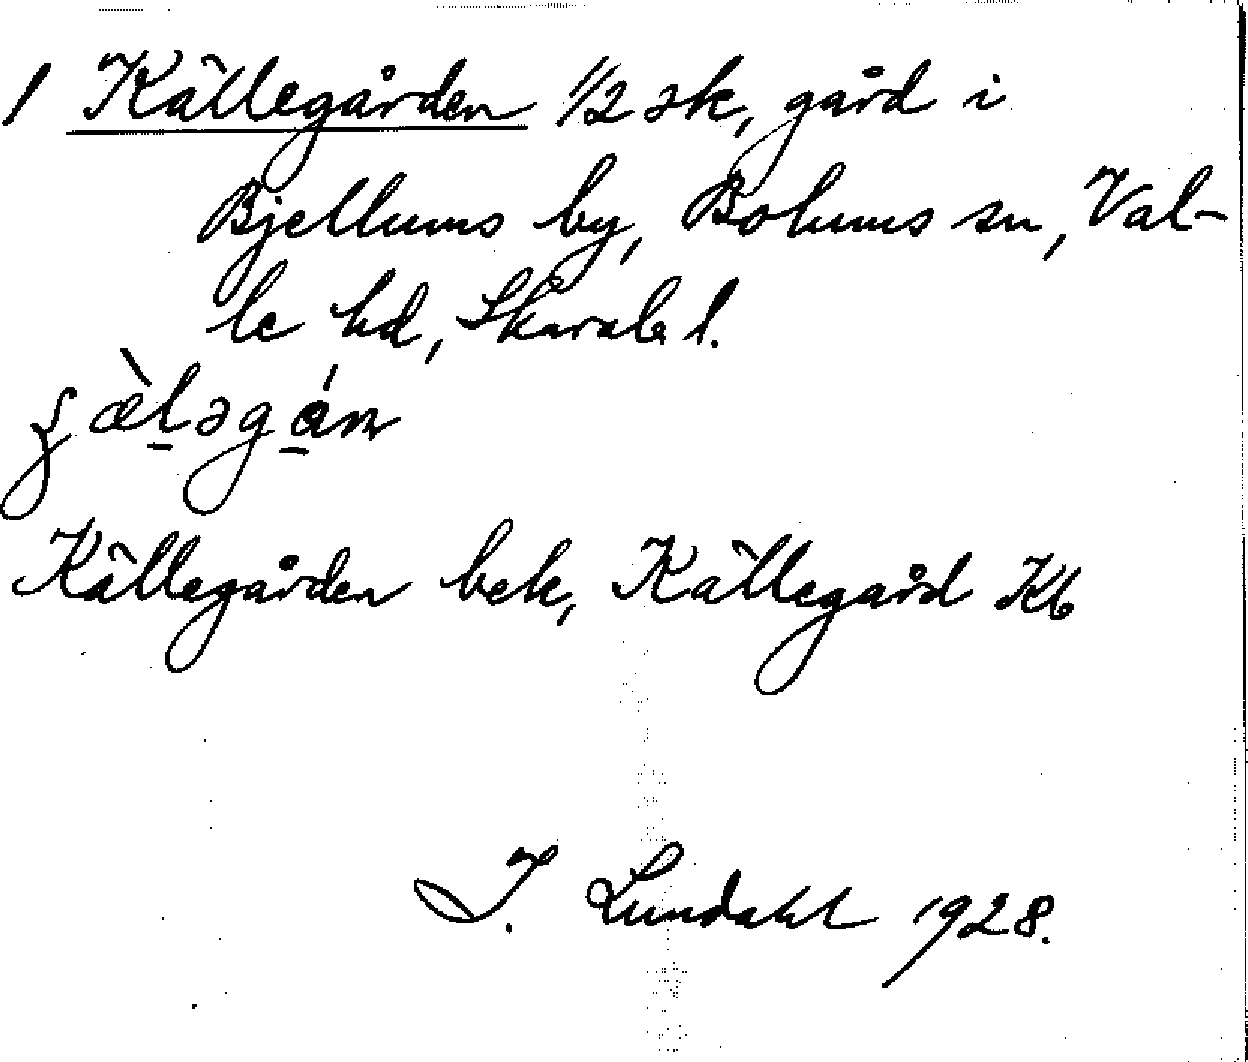 1 Källegården 1/2 sk, gård i
Bjellums by, Bolums sn, Val-
le hd, Skarab. l.
Källegården bek, Källegård Kb
I. Lundahl 1928.